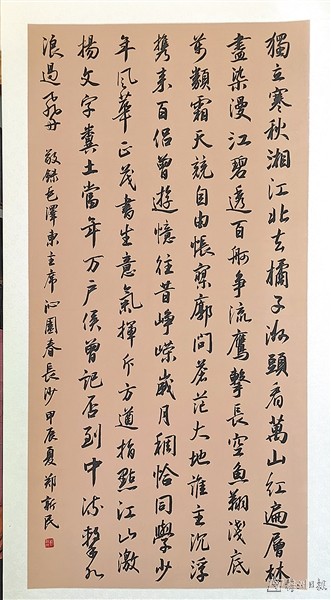 獨立寒秋湘江北去橘子洲頭看萬山紅遍層林
盡染漫江碧透百舸争流鷹擊長空魚翔淺底
萬類霜天競自由悵寥廓問蒼茫大地誰主沉浮
携來百侣曾遊憶往昔崢嶸歲月稠恰同學少
年風華正茂書生意氣揮斥方遒指點江山激
揚文字糞土當年万户侯曾記否到中流擊水
浪遏飛舟 敬録毛澤東主席沁園春長沙 甲辰夏郑新民
梅州日报